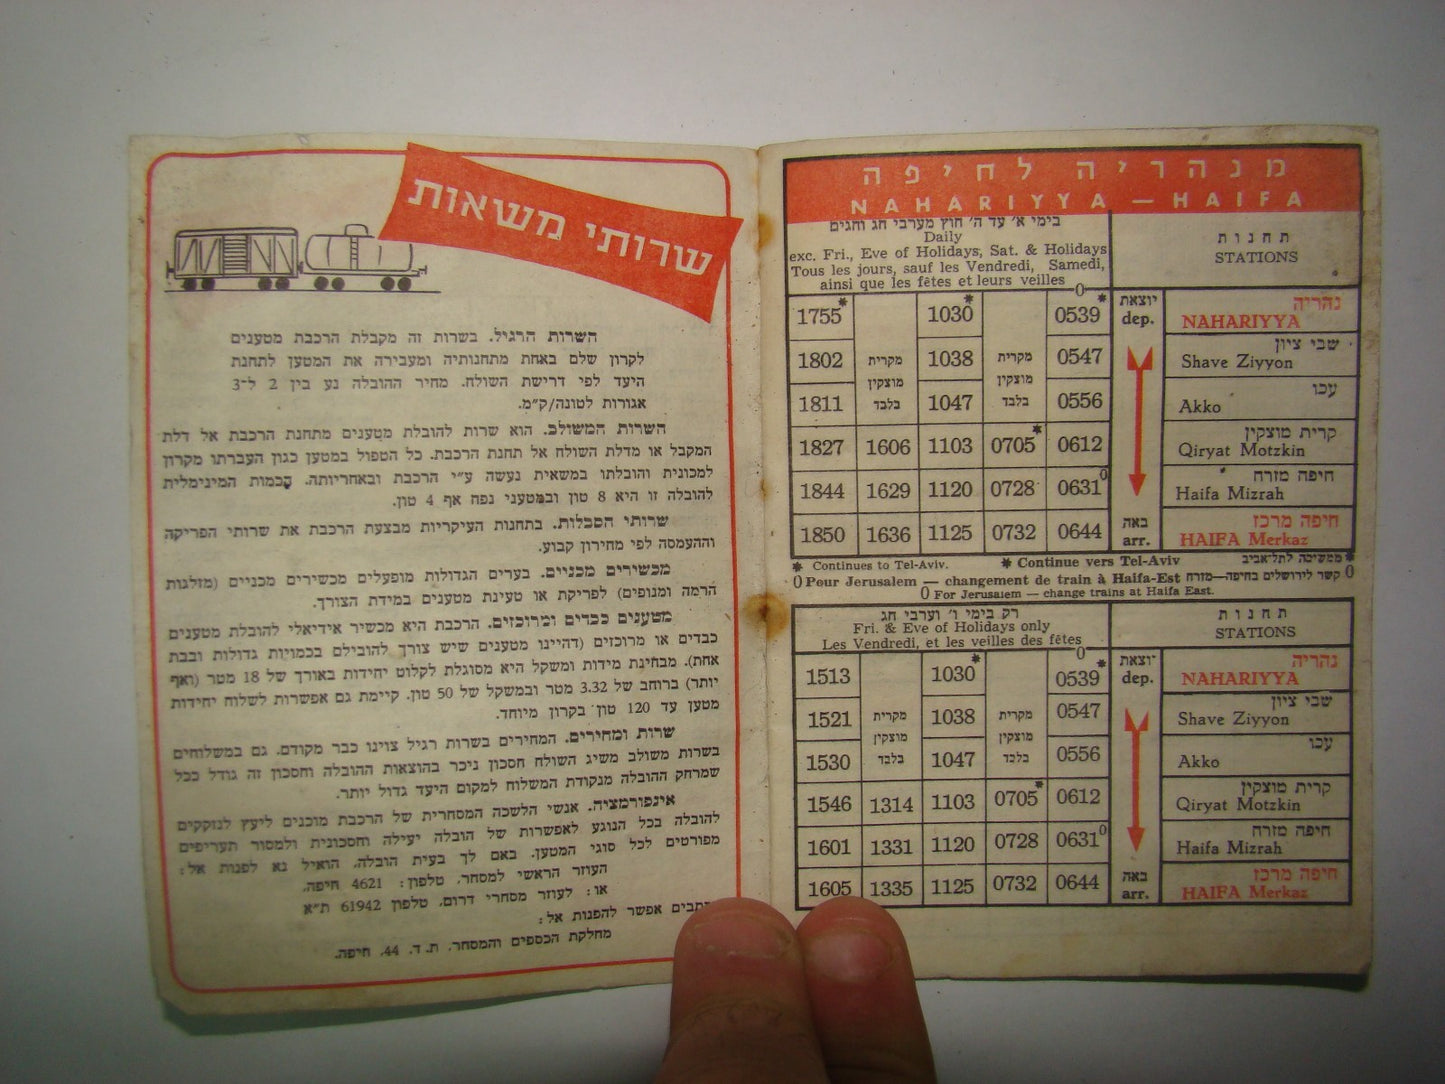 מנהריה לחיפה
NAHARIYYA — HAIFA
בימי א׳ עד ה׳ חוץ מערבי חג וחגים
Daily
exc. Fri., Eve of Holidays, Sat. & Holidays
Tous les jours, sauf les Vendredi, Samedi,
ainsi que les fêtes et leurs veilles
תחנות
STATIONS
1755* 1030* 0539* 0 יוצאת dep. נהריה NAHARIYYA
1802 מקרית 1038 מקרית 0547 שבי ציון Shave Ziyyon
מוצקין מוצקין
1811 בלבד 1047 בלבד 0556 עכו Akko
1827 1606 1103 0705* 0612 קרית מוצקין Qiryat Motzkin
1844 1629 1120 0728 0631 0 חיפה מזרח Haifa Mizrah
1850 1636 1125 0732 0644 באה arr. חיפה מרכז HAIFA Merkaz
* Continues to Tel-Aviv. * Continue vers Tel-Aviv * ממשיכה לתל־אביב
0 Pour Jerusalem — changement de train à Haifa-Est 0 קשר לירושלים בחיפה—מזרח
0 For Jerusalem — change trains at Haifa East.
רק בימי ו׳ וערבי חג
Fri. & Eve of Holidays only
Les Vendredi, et les veilles des fêtes
תחנות
STATIONS
1513 1030* 0539* 0 יוצאת dep. נהריה NAHARIYYA
1521 מקרית 1038 מקרית 0547 שבי ציון Shave Ziyyon
מוצקין מוצקין
1530 בלבד 1047 בלבד 0556 עכו Akko
1546 1314 1103 0705* 0612 קרית מוצקין Qiryat Motzkin
1601 1331 1120 0728 0631 0 חיפה מזרח Haifa Mizrah
1605 1335 1125 0732 0644 באה arr. חיפה מרכז HAIFA Merkaz
שרותי משאות
השרות הרגיל. בשרות זה מקבלת הרכבת מטענים
לקרון שלם באחת מתחנותיה ומעבירה את המטען לתחנת
היעד לפי דרישת השולח. מחיר ההובלה נע בין 2 ל־3
אגורות לטונה/ק״מ.
השרות המשולב. הוא שרות להובלת מטענים מתחנת הרכבת אל דלת
המקבל או מדלת השולח אל תחנת הרכבת. כל הטפול במטען כגון העברתו מקרון
למכונית והובלתו במשאית נעשה ע״י הרכבת ובאחריותה. הכמות המינימלית
להובלה זו היא 8 טון ובמטעני נפח אף 4 טון.
שרותי הסבלות. בתחנות העיקריות מבצעת הרכבת את שרותי הפריקה
וההעמסה לפי מחירון קבוע.
מכשירים מכניים. בערים הגדולות מופעלים מכשירים מכניים (מזלגות
הרמה ומנופים) לפריקת או טעינת מטענים במידת הצורך.
מטענים כבדים ומרוכזים. הרכבת היא מכשיר אידיאלי להובלת מטענים
כבדים או מרוכזים (דהיינו מטענים שיש צורך להובילם בכמויות גדולות ובבת
אחת). מבחינת מידות ומשקל היא מסוגלת לקלוט יחידות באורך של 18 מטר (ואף
יותר) ברוחב של 3.32 מטר ובמשקל של 50 טון. קיימת גם אפשרות לשלוח יחידות
מטען עד 120 טון בקרון מיוחד.
שרות ומחירים. המחירים בשרות רגיל צוינו כבר מקודם. גם במשלוחים
בשרות משולב משיג השולח חסכון ניכר בהוצאות ההובלה וחסכון זה גודל ככל
שמרחק ההובלה מנקודת המשלוח למקום היעד גדול יותר.
אינפורמציה. אנשי הלשכה המסחרית של הרכבת מוכנים ליעץ לנזקקים
להובלה בכל הנוגע לאפשרות של הובלה יעילה וחסכונית ולמסור תעריפים
מפורטים לכל סוגי המטען. באם לך בעית הובלה, הואיל נא לפנות אל:
העוזר הראשי למסחר, טלפון: 4621 חיפה,
או: לעוזר מסחרי דרום, טלפון 61942 ת״א
מכתבים אפשר להפנות אל:
מחלקת הכספים והמסחר, ת.ד. 44, חיפה.